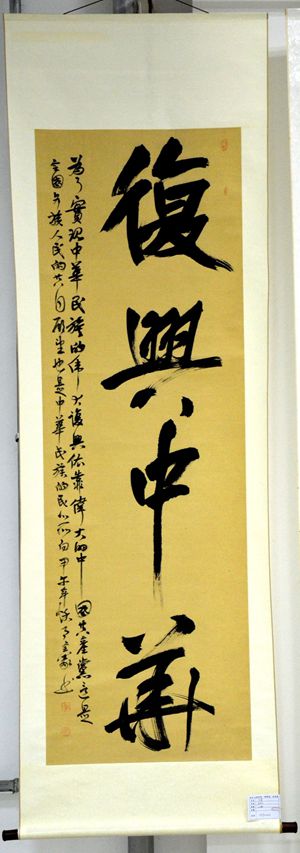 復興中華
為了實現中華民族的偉大復興依靠偉大的中國共產黨這是
全國各族人民的共同願望也是中華民族的民心所向甲午年